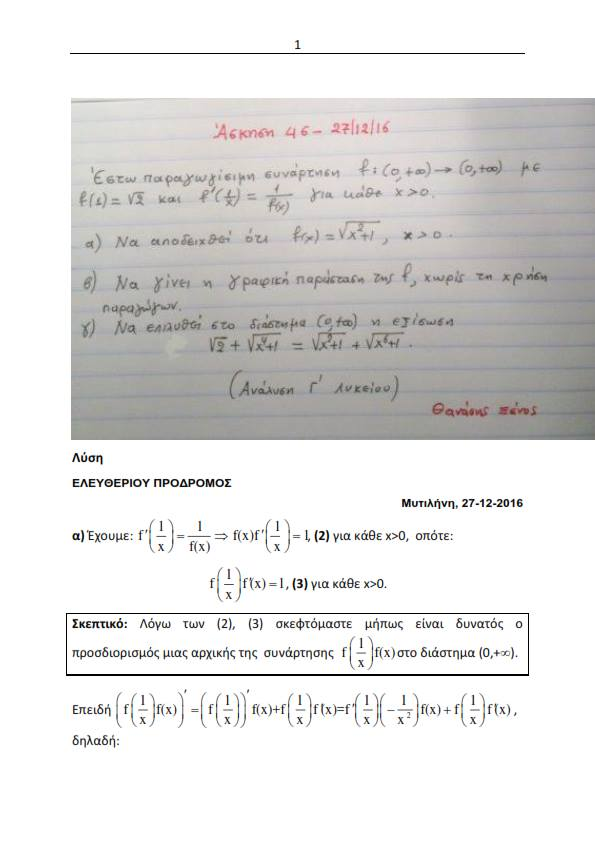 1
Άσκηση 46 - 27/12/16
Έστω παραγωγίσιμη συνάρτηση f: (0,+∞) → (0,+∞) με
f(1) = √2 και f'(1/x) = 1/f(x) για κάθε x>0.
α) Να αποδειχθεί ότι f(x) = √(x²+1), x>0.
β) Να γίνει η γραφική παράσταση της f, χωρίς τη χρήση
παραγώγων.
γ) Να επιλυθεί στο διάστημα (0,+∞) η εξίσωση
(Ανάλυση Γ' Λυκείου)
Θανάσης Ξένος
Λύση
ΕΛΕΥΘΕΡΙΟΥ ΠΡΟΔΡΟΜΟΣ
Μυτιλήνη, 27-12-2016
α) Έχουμε: f'(1/x) = 1/f(x) ⇒ f(x)f'(1/x) = 1, (2) για κάθε x>0, οπότε:
f(1/x)f'(x) = 1, (3) για κάθε x>0.
Σκεπτικό: Λόγω των (2), (3) σκεφτόμαστε μήπως είναι δυνατός ο
προσδιορισμός μιας αρχικής της συνάρτησης f(1/x)f(x) στο διάστημα (0,+∞).
Επειδή (f(1/x)f(x))' = (f(1/x))' f(x)+f(1/x)f'(x)=f'(1/x)(-1/x²)f(x)+f(1/x)f'(x) ,
δηλαδή: